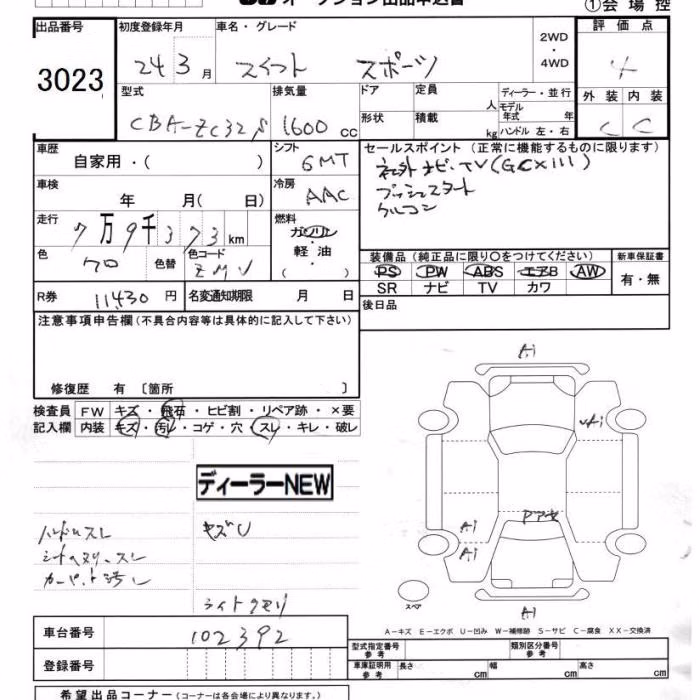 オークション出品申込書
①会場控
出品番号 初度登録年月 車名・グレード 評価点
3023 24年3月 スイフト スポーツ 2WD・4WD 4
型式 排気量 ドア 定員 人 ディーラー・並行 外装 内装
CBA-ZC32S 1600cc 形状 積載 kg モデル年式 年 ハンドル 左・右 C C
車歴 シフト セールスポイント(正常に機能するものに限ります)
自家用・( ) 6MT 社外ナビ・TV(GCX111)
車検 冷房 プッシュスタート
年 月( 日) AAC クルコン
走行 燃料
7万9千373km ガソリン・軽油・( )
色 色替 色コード 装備品(純正品に限り○をつけてください) 新車保証書
クロ ZMV PS PW ABS エアB AW 有・無
SR ナビ TV カワ
R券 11430円 名変通知期限 月 日 後日品
注意事項申告欄(不具合内容等は具体的に記入して下さい)
修復歴 有〔箇所 〕
検査員 FW キズ・飛石・ヒビ割・リペア跡・×要
記入欄 内装 キズ・汚レ・コゲ・穴・スレ・キレ・破レ
ディーラーNEW
ハンドルスレ キズU
カーペット汚レ
ライトクモリ
A1
A1
A1
A1
スペア
A1
A-キズ E-エクボ U-凹み W-補修跡 S-サビ C-腐食 XX-交換済
車台番号 102392 型式指定番号 参考 類別区分番号 参考
登録番号 車庫証明用 参考 長さ cm 幅 cm 高さ cm
希望出品コーナー(コーナーは各会場により異なります。)